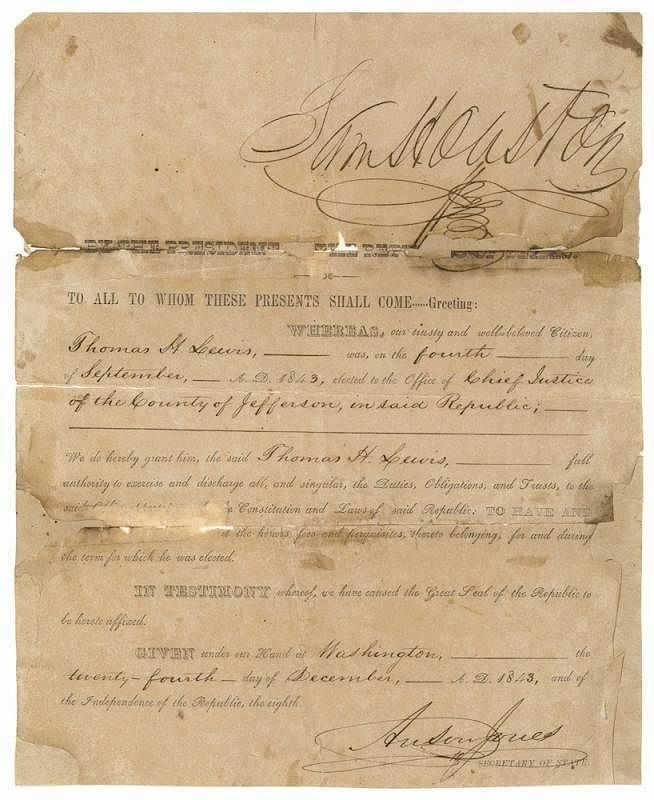 Sam Houston
BY THE PRESIDENT
TO ALL TO WHOM THESE PRESENTS SHALL COME.....Greeting:
WHEREAS, our trusty and well-beloved Citizen,
Thomas H. Lewis, was, on the fourth day
of September, A. D. 1843, elected to the Office of Chief Justice
of the County of Jefferson, in said Republic;
We do hereby grant him, the said Thomas H. Lewis, full
authority to exercise and discharge all, and singular, the Duties, Obligations, and Trusts, to the
said Constitution and Laws of said Republic: TO HAVE AND
the honors, fees and perquisites, thereto belonging, for and during
the term for which he was elected.
IN TESTIMONY whereof, we have caused the Great Seal of the Republic to
be hereto affixed.
GIVEN under our Hand at Washington, the
twenty-fourth day of December, A. D. 1843, and of
the Independence of the Republic, the eighth.
Anson Jones
SECRETARY OF STATE.